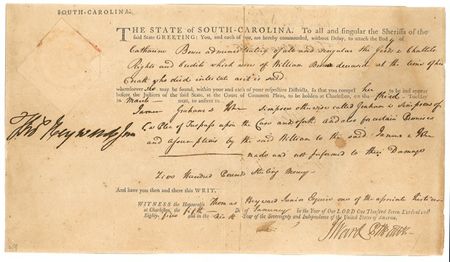 SOUTH-CAROLINA.
THE STATE of SOUTH-CAROLINA. To all and singular the Sheriffs of the
said State GREETING: You, and each of you, are hereby commanded, without Delay, to attach the Body of
Catharine administratrix of all and singular the goods & Chattels
Rights and Credits which were of William deceased at the time of his
Death who died intestate as it is said
wheresoever she may be found, within your and each of your respective Districts, so that you compel her to be and appear
before the Justices of the said State, at the Court of Common Pleas, to be holden at Charleston, on the third Tuesday
in March next, to answer to
James Graham & John Simpson otherwise called Graham & Simpson of
a Plea of Trespass upon the Case and also for certain Promises
and assumptions by the said William to the said James & John
made and not performed to their Damages
Two Hundred Pounds Sterling Money
And have you then and there this WRIT.
WITNESS the Honorable Thomas Heyward Junior Esquire one of the associate Justices
at Charleston, the fifth day of January in the Year of Our LORD One Thousand Seven Hundred and
Eighty five and in the Year of the Sovereignty and Independence of the United States of America.
Thos Heyward Jun